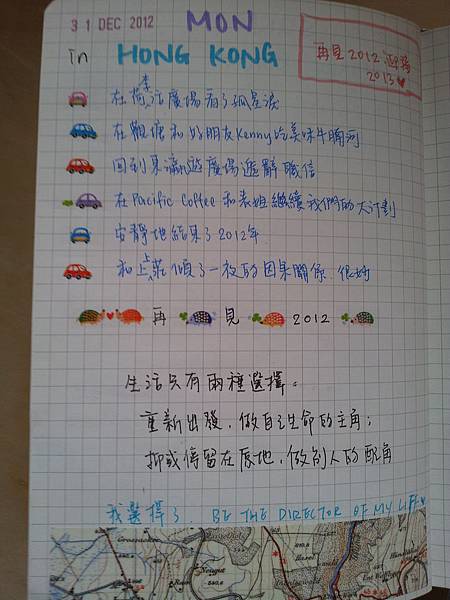 31 DEC 2012 MON
in HONG KONG
再見2012 迎接
2013
在荷李活廣場看了狐星淚
在觀塘和好朋友Kenny吃美味牛腩河
回到東瀛遊廣場遞辭職信
在Pacific Coffee和表姐繼續我們的大計劃
安靜地結束了2012年
和上莊傾了一夜的因果關係.很妙
再見 2012
生活只有兩種選擇。
重新出發,做自己生命的主角;
抑或停留在原地,做別人的配角
我選擇了. BE THE DIRECTOR OF MY LIFE